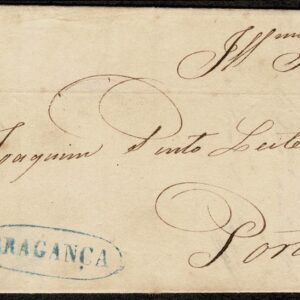 Illmo
Joaquim Pinto Leite
Por
BRAGANÇA